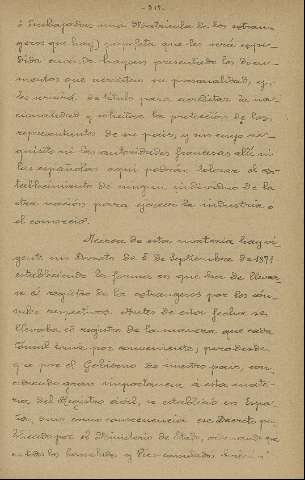 - 315. -
ó trabajadores una Matrícula de los extran-
geros que hay) papeleta que les será expe-
dida cuando hayan presentado los docu-
mentos que acrediten su personalidad, y
les servirá de título para acreditar la na-
cionalidad y solicitar la protección de los
representantes de su país, y sin cuyo re-
quisito ni las autoridades francesas allí ni
las españolas aquí podrán tolerar el es-
tablecimiento de ningun individuo de la
otra nación para ejercer la industria o
el comercio.
Acerca de esta materia hay vi-
gente un Decreto de 5 de Septiembre de 1871
estableciendo la forma en que han de llevar-
se el registro de los extrangeros por los cón-
sules respectivos. Antes de esta fecha se
llevaba el registro de la manera que cada
Consul tuvo por conveniente; pero desde
que por el Gobierno de nuestro pais, con-
cediendo gran importancia á esta mate-
ria del Registro civil, se estableció en Espa-
ña, vino como consecuencia ese Decreto pu-
blicado por el Ministerio de Estado, ordenando que
en todos los Consulados y Vice-consulados